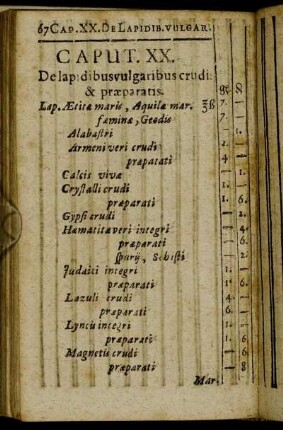 67 CAP. XX. DE LAPIDIB. VULGAR.
CAPUT. XX.
De lapidibus vulgaribus crudis
& præparatis.
Lap. Ætitæ maris, Aquilæ mar. ʒß 7
fæminæ, Geodis
Alabastri
Armeni veri crudi
præpatati 4
Calcis vivæ
Crystalli crudi 1
præparati 1 6
Gypsi crudi 2
Hæmatitæ veri integri 1
præparati 6
spurij, Schisti
Judaici integri 1
præparati 1 6
Lazuli crudi 4
præparati 6
Lyncii integri 1
præparati 1 6
Magnetis crudi 6
præparati 8
Mar.